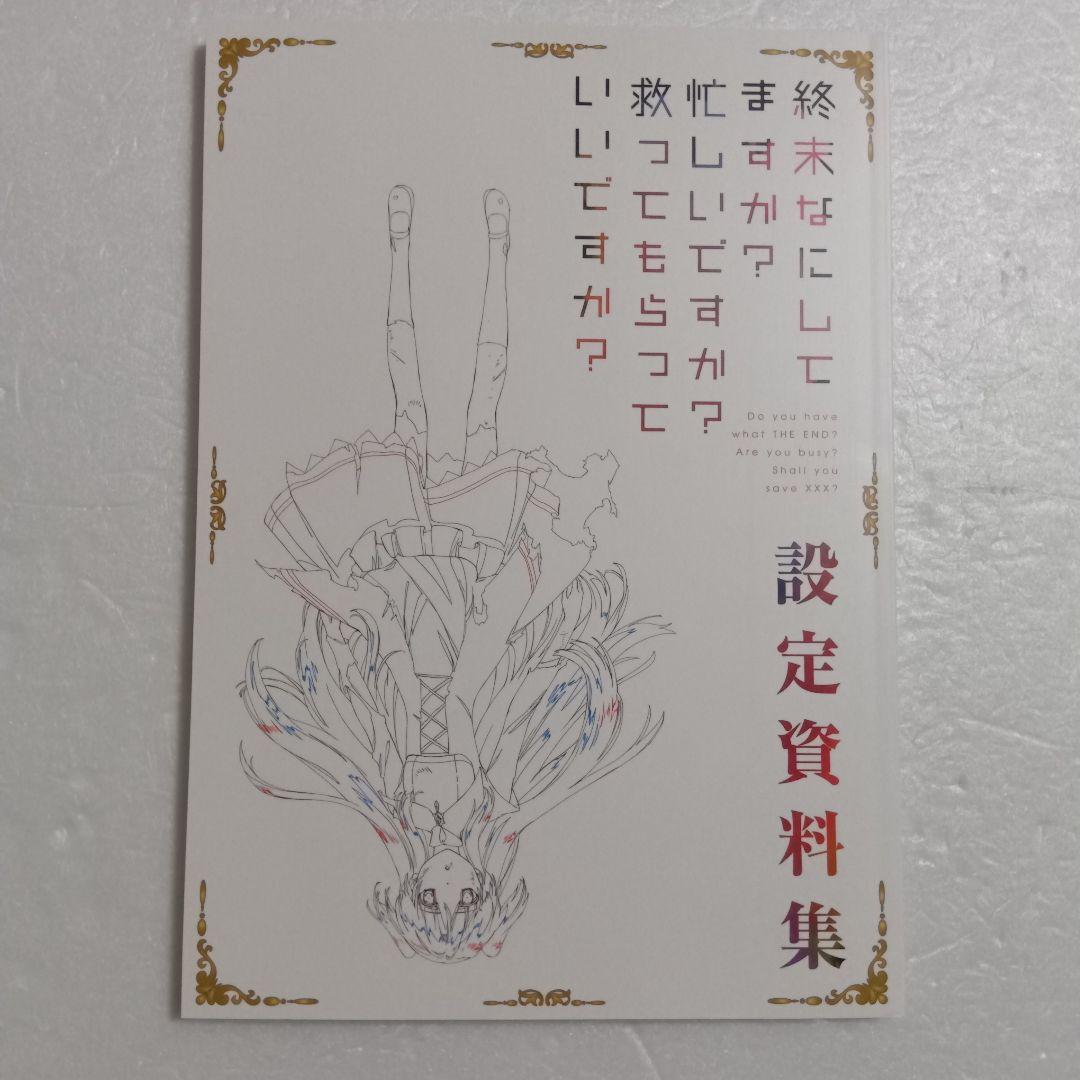 終末なにして
ますか?
忙しいですか?
救ってもらって
いいですか?
Do you have
what THE END?
Are you busy?
Shall you
save XXX?
設定資料集